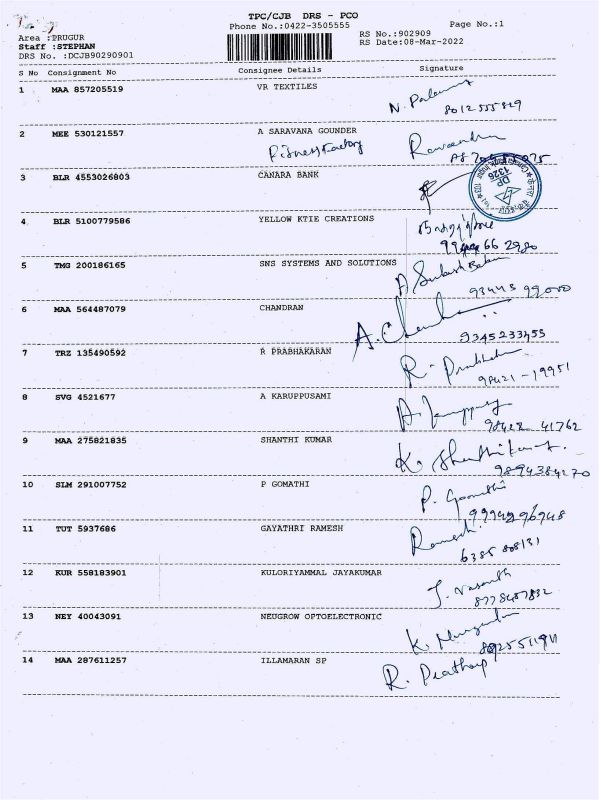 TPC/CJB DRS - PCO
Phone No.:0422-3505555
Page No.:1
Area :PRUGUR
RS No.:902909
Staff :STEPHAN
RS Date:08-Mar-2022
DRS No. :DCJB90290901
S No Consignment No Consignee Details Signature
1 MAA 857205519 VR TEXTILES
2 MEE 530121557 A SARAVANA GOUNDER
3 BLR 4553026803 CANARA BANK
DP
1326
4 BLR 5100779586 YELLOW KTIE CREATIONS
5 TMG 200186165 SNS SYSTEMS AND SOLUTIONS
93443 99000
6 MAA 564487079 CHANDRAN
9345233455
7 TRZ 135490592 R PRABHAKARAN
98421-19951
8 SVG 4521677 A KARUPPUSAMI
98428 41762
9 MAA 275821835 SHANTHI KUMAR
K. Shanthikumar
9894384270
10 SLM 291007752 P GOMATHI
P. Gomathi
11 TUT 5937686 GAYATHRI RAMESH
Ramesh
12 KUR 558183901 KULORIYAMMAL JAYAKUMAR
J. Vasanth
13 NEY 40043091 NEUGROW OPTOELECTRONIC
14 MAA 287611257 ILLAMARAN SP
R. Prathap